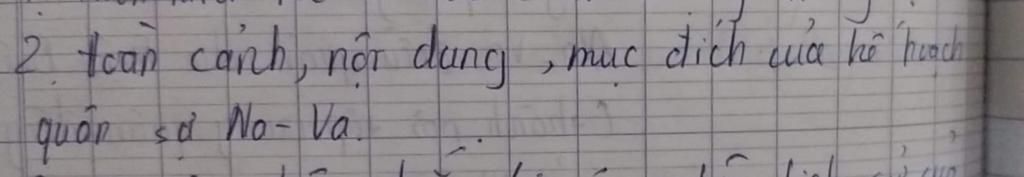 2. Hoàn cảnh, nội dung, mục đích của kế hoạch
quân sự Na-Va.